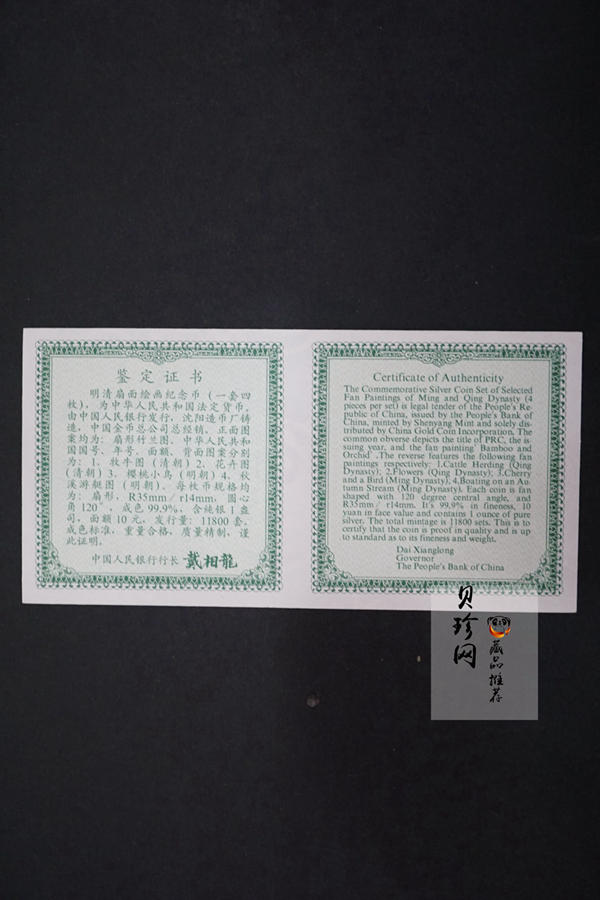 鉴定证书
明清扇面绘画纪念币(一套四
枚),为中华人民共和国法定货币,
由中国人民银行发行,沈阳造币厂铸
造,中国金币总公司总经销。正面图
案均为:扇形竹兰图、中华人民共和
国国号、年号、面额、背面图案分别
为:1、牧牛图(清朝)2、花卉图
(清朝)3、樱桃小鸟(明朝)4、秋
溪游艇图(明朝)。每枚币规格均
为:扇形,R35mm/r14mm,圆心
角120°,成色99.9%,含纯银1盎
司,面额10元,发行量:11800套。
成色标准,重量合格,质量精制,谨
此证明。
中国人民银行行长 戴相龍
Certificate of Authenticity
The Commemorative Silver Coin Set of Selected
Fan Paintings of Ming and Qing Dynasty (4
pieces per set) is legal tender of the People's Re-
public of China, issued by the People's Bank of
China, minted by Shenyang Mint and solely dis-
tributed by China Gold Coin Incorporation. The
common obverse depicts the title of PRC, the is-
suing year, and the fan painting "Bamboo and
Orchid". The reverse features the following fan
paintings respectively: 1.Cattle Herding (Qing
Dynasty); 2.Flowers (Qing Dynasty); 3.Cherry
and a Bird (Ming Dynasty); 4.Boating on an Au-
tumn Stream (Ming Dynasty). Each coin is fan
shaped with 120 degree central angle, and
R35mm / r14mm. It's 99.9% in fineness, 10
yuan in face value and contains 1 ounce of pure
silver. The total mintage is 11800 sets. This is to
certify that the coin is proof in quality and is up
to standard as to its fineness and weight.
Dai Xianglong
Governor
The People's Bank of China
贝珍网
藏品推荐